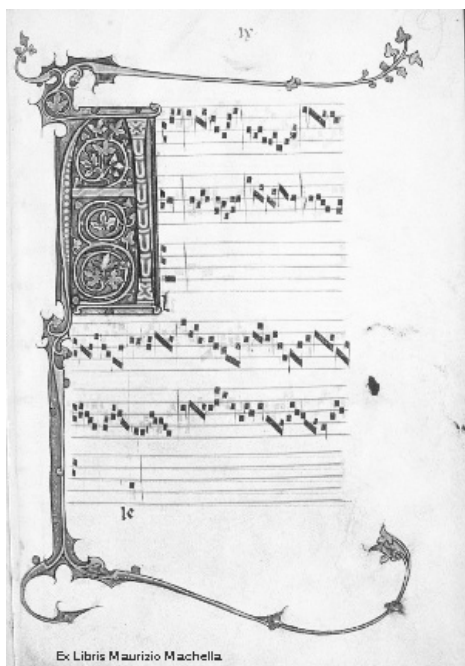 IX
A
l
le
Ex Libris Maurizio Machella